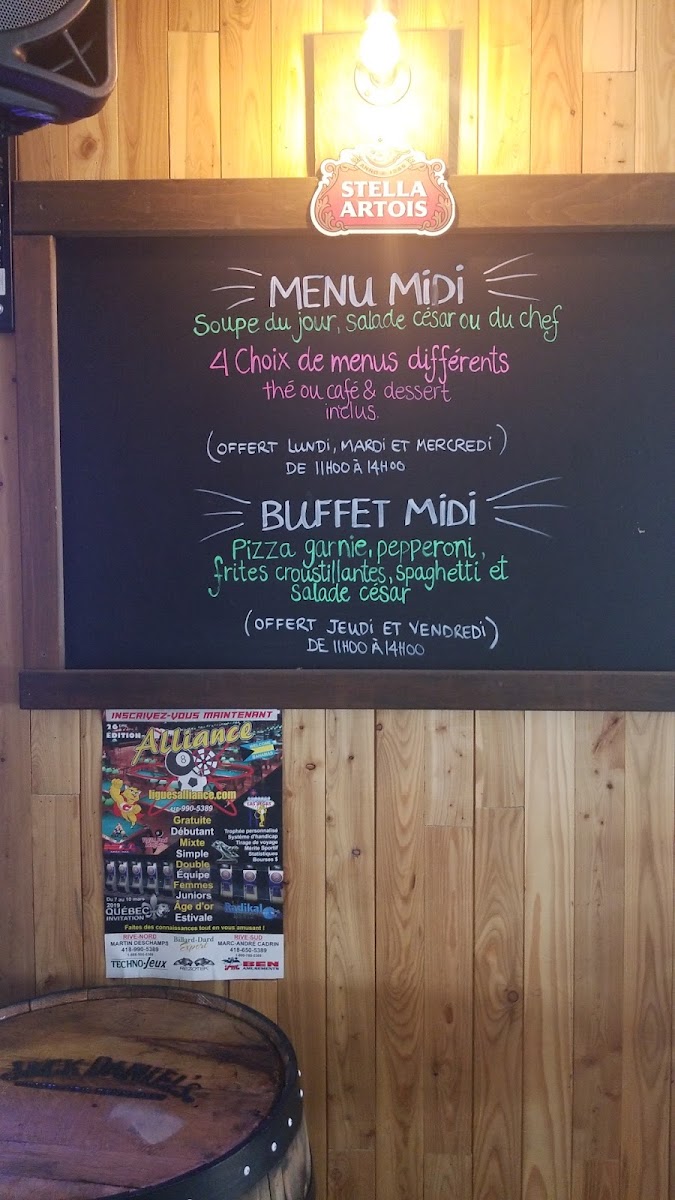 STELLA
ARTOIS
MENU MIDI
Soupe du jour, salade césar ou du chef
4 Choix de menus différents
thé ou café & dessert
inclus.
(OFFERT LUNDI, MARDI ET MERCREDI)
DE 11H00 À 14H00
BUFFET MIDI
Pizza garnie, pepperoni,
frites croustillantes, spaghetti et
salade césar
(OFFERT JEUDI ET VENDREDI)
DE 11H00 À 14H00
INSCRIVEZ-VOUS MAINTENANT
26
ÉDITION
Alliance
8
liguesalliance.com
418-990-5389
Gratuite
Débutant
Mixte
Simple
Double
Équipe
Femmes
Juniors
Âge d'or
Estivale
LAS VEGAS
Trophée personnalisé
Système d'handicap
Tirage de voyage
Mérite Sportif
Statistiques
Bourses $
Du 7 au 10 mars
2019
QUÉBEC
INVITATION
Radikal
Faites des connaissances tout en vous amusant !
RIVE-NORD
MARTIN DESCHAMPS
418-990-5389
Billard-Dard
Expert
RIVE SUD
MARC-ANDRÉ CADRIN
418-650-5389
TECHNO-Jeux
BEN
AMUSEMENTS
JACK DANIEL'S